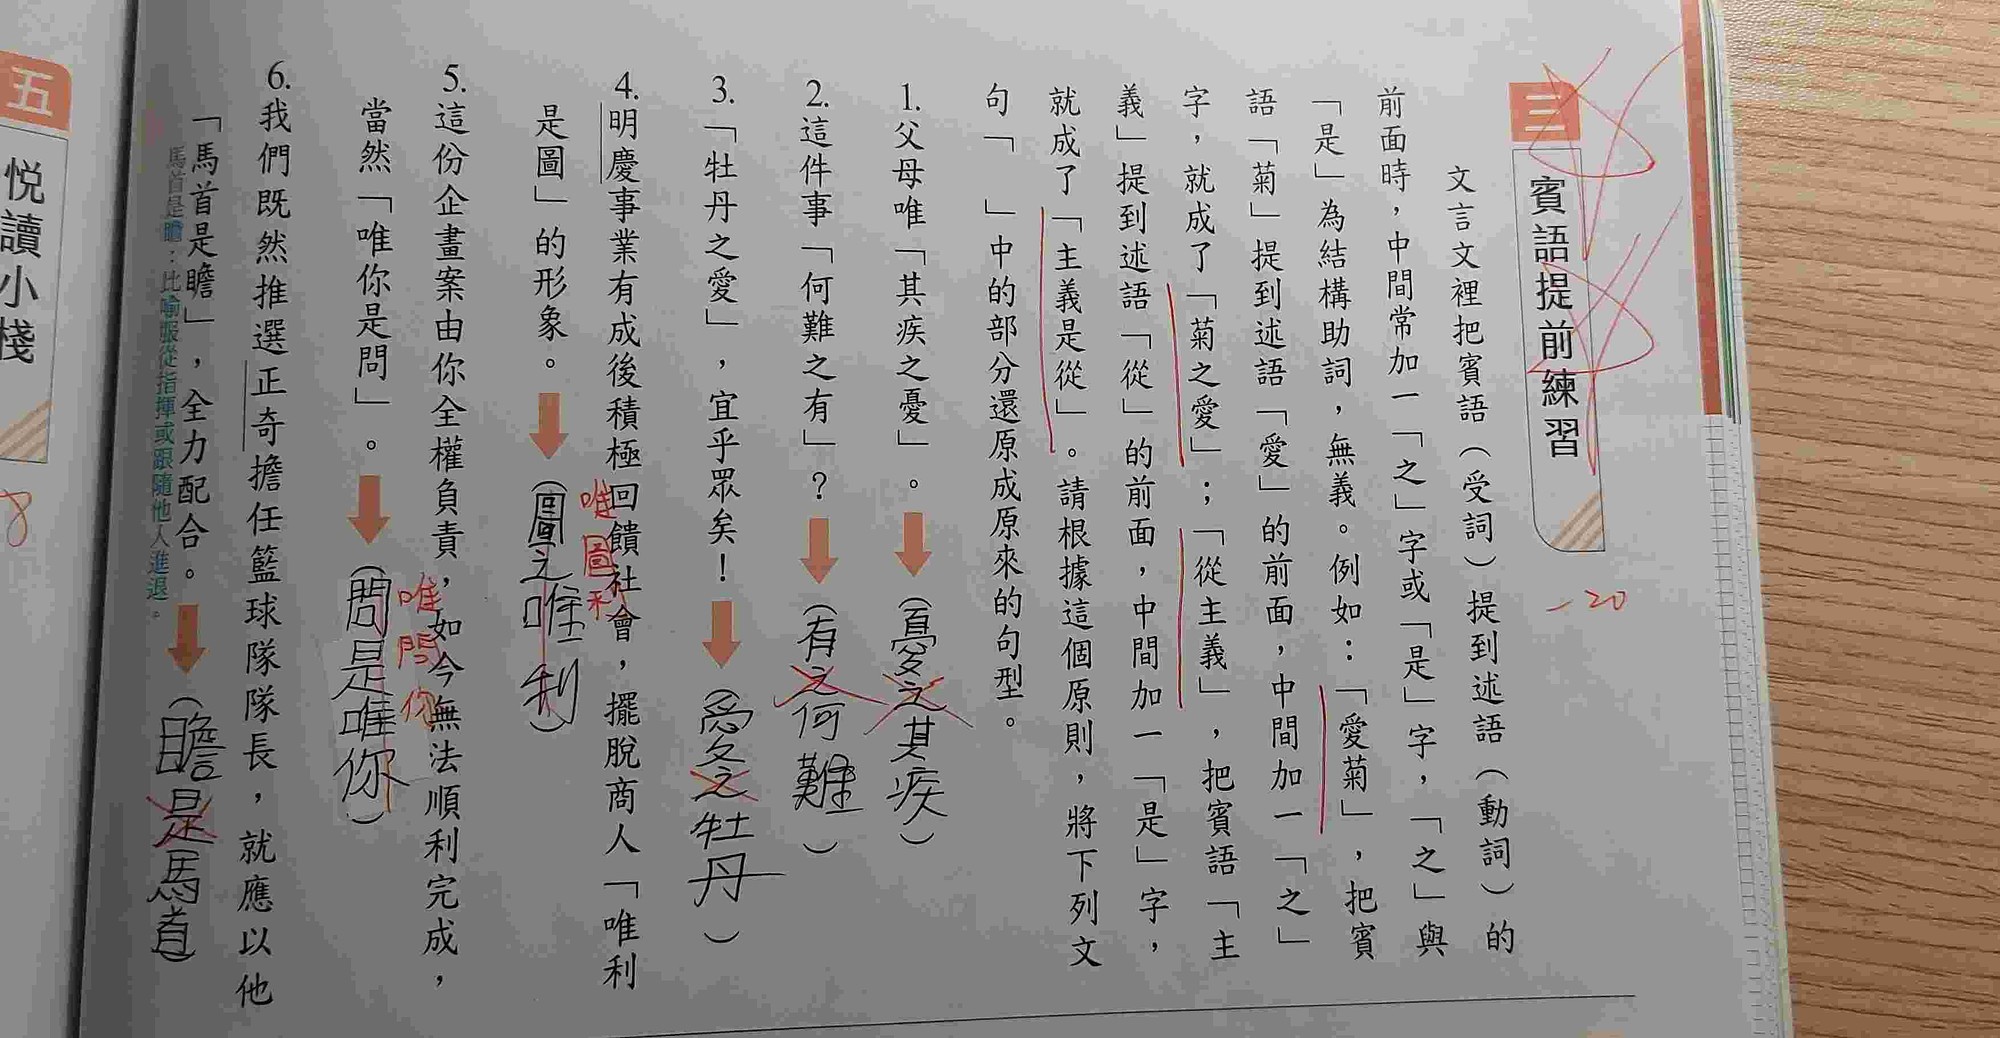 三 賓語提前練習
-20
文言文裡把賓語（受詞）提到述語（動詞）的
前面時，中間常加一「之」字或「是」字，「之」與
「是」為結構助詞，無義。例如：「愛菊」，把賓
語「菊」提到述語「愛」的前面，中間加一「之」
字，就成了「菊之愛」；「從主義」，把賓語「主
義」提到述語「從」的前面，中間加一「是」字，
就成了「主義是從」。請根據這個原則，將下列文
句「　」中的部分還原成原來的句型。
1.父母唯「其疾之憂」。（憂之其疾）
2.這件事「何難之有」？（有之何難）
3.「牡丹之愛」，宜乎眾矣！（愛之牡丹）
4.明慶事業有成後積極回饋社會，擺脫商人「唯利
是圖」的形象。（圖之唯利）
唯圖利
5.這份企畫案由你全權負責，如今無法順利完成，
當然「唯你是問」。（問是唯你）
唯問你
6.我們既然推選正奇擔任籃球隊隊長，就應以他
「馬首是瞻」，全力配合。（瞻是馬首）
馬首是瞻：比喻服從指揮或跟隨他人進退。
五 悅讀小棧
8